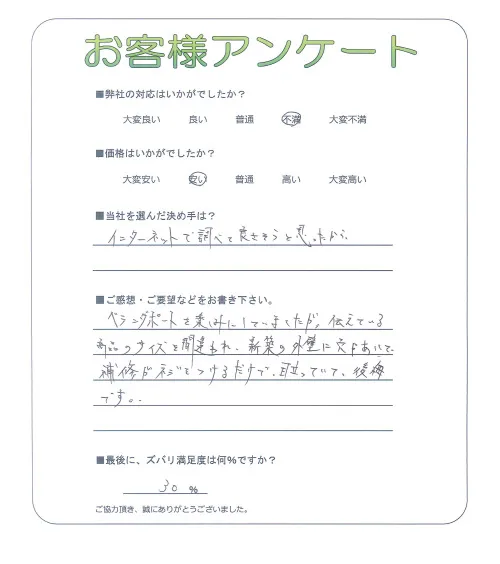 お客様アンケート
■弊社の対応はいかがでしたか?
大変良い 良い 普通 不満 大変不満
■価格はいかがでしたか?
大変安い 安い 普通 高い 大変高い
■当社を選んだ決め手は?
インターネットで調べて良さそうと思ったから
■ご感想・ご要望などをお書き下さい。
を楽しみにしていましたが、伝えている
商品のサイズを間違われ、新築の外壁に穴があいて、
補修がネジをつけるだけで、目立っていて、後悔
です。
■最後に、ズバリ満足度は何%ですか?
30 %
ご協力頂き、誠にありがとうございました。